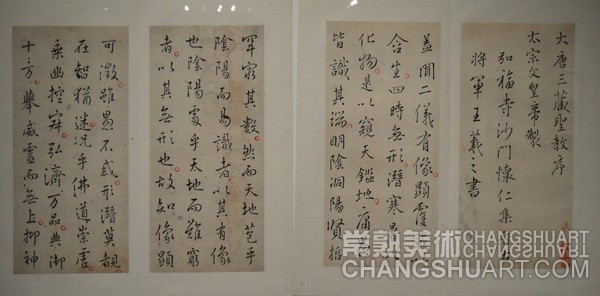 大唐三藏聖教序
太宗文皇帝製
弘福寺沙門懷仁集
將軍王羲之書
蓋聞二儀有像顯覆
含生四時無形潛寒
化物是以窺天鑑地庸
皆識其端明陰洞陽賢哲
罕窮其數然而天地苞乎
陰陽而易識者以其有像
也陰陽處乎天地而難窮
者以其無形也故知像顯
可徵雖愚不惑形潛莫覩
在智猶迷況乎佛道崇虛
乘幽控寂弘濟萬品典御
十方舉威靈而無上抑神
常熟美術 CHANGSHUART
CHANGSHUART.COM